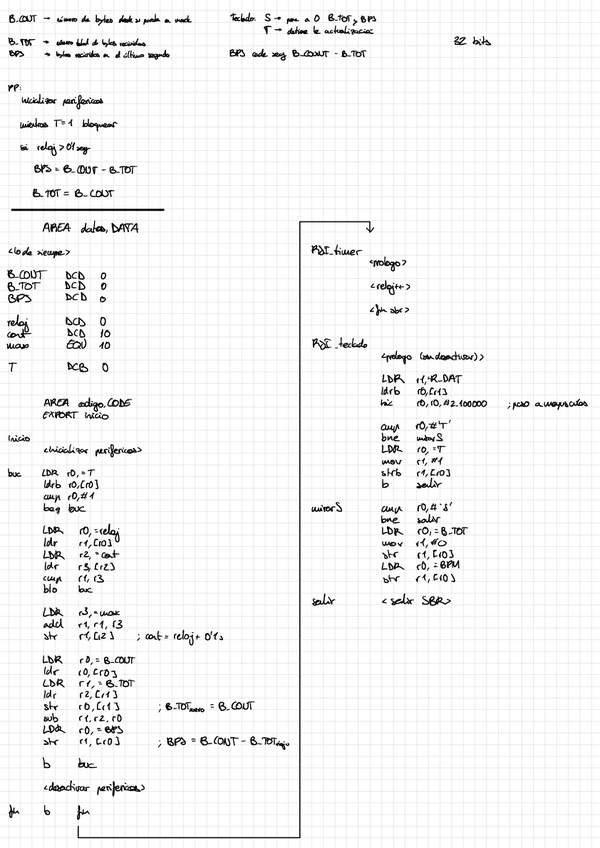 B_COUT → número de bytes desde se prende a mack
B_TOT → número total de bytes recibidos
BPS → bytes recibidos en el último segundo
Teclado: S → pone a 0 B_TOT y BPS
T → detiene la actualización
BPS cada seg B_COUNT - B_TOT
32 bits
PP:
Inicializar periféricos
mientras T=1 bloquear
si reloj > 0'1 seg
BPS = B_COUT - B_TOT
B_TOT = B_COUT
AREA datos, DATA
<lo de siempre>
B_COUT DCD 0
B_TOT DCD 0
BPS DCD 0
reloj DCD 0
cont DCD 10
maxo EQU 10
T DCB 0
AREA codigo, CODE
EXPORT Inicio
Inicio
<Inicializar periféricos>
buc LDR r0,=T
ldrb r0,[r0]
cmp r0,#1
beq buc
LDR r0,=reloj
ldr r1,[r0]
LDR r2,=cont
ldr r3,[r2]
cmp r1,r3
blo buc
LDR r3,=max
add r1,r1,r3
str r1,[r2] ; cont = reloj + 0'1s
LDR r0,=B_COUT
ldr r0,[r0]
LDR r1,=B_TOT
ldr r2,[r1]
str r0,[r1] ; B_TOT nuevo = B_COUT
sub r1,r2,r0
LDR r0,=BPS
str r1,[r0] ; BPS = B_COUT - B_TOT viejo
b buc
<desactivar periféricos>
fin b fin
RSI_timer
<prologo>
<reloj++>
<fin sbr>
RSI_teclado
<prologo (sin desactivar)>
LDR r1,=R_DAT
ldrb r0,[r1]
bic r0,r0,#2_100000 ; paso a mayúsculas
cmp r0,#'T'
bne mirarS
LDR r0,=T
mov r1,#1
strb r1,[r0]
b salir
mirarS cmp r0,#'S'
bne salir
LDR r0,=B_TOT
mov r1,#0
str r1,[r0]
LDR r0,=BPM
str r1,[r0]
salir <salir SBR>